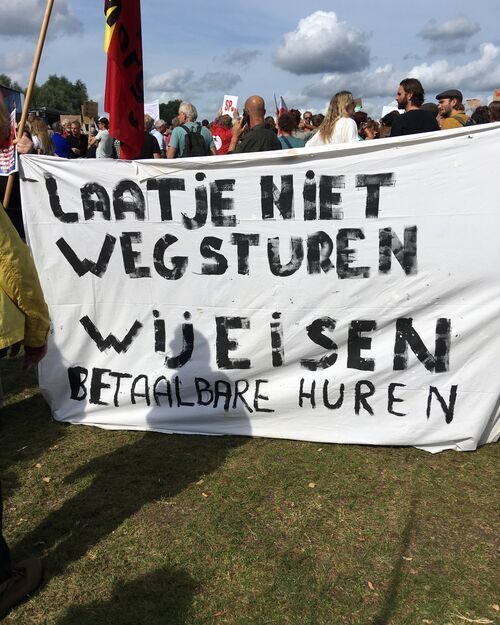 SP.
LAATJE NIET
WEGSTUREN
WIJ EISEN
BETAALBARE HUREN